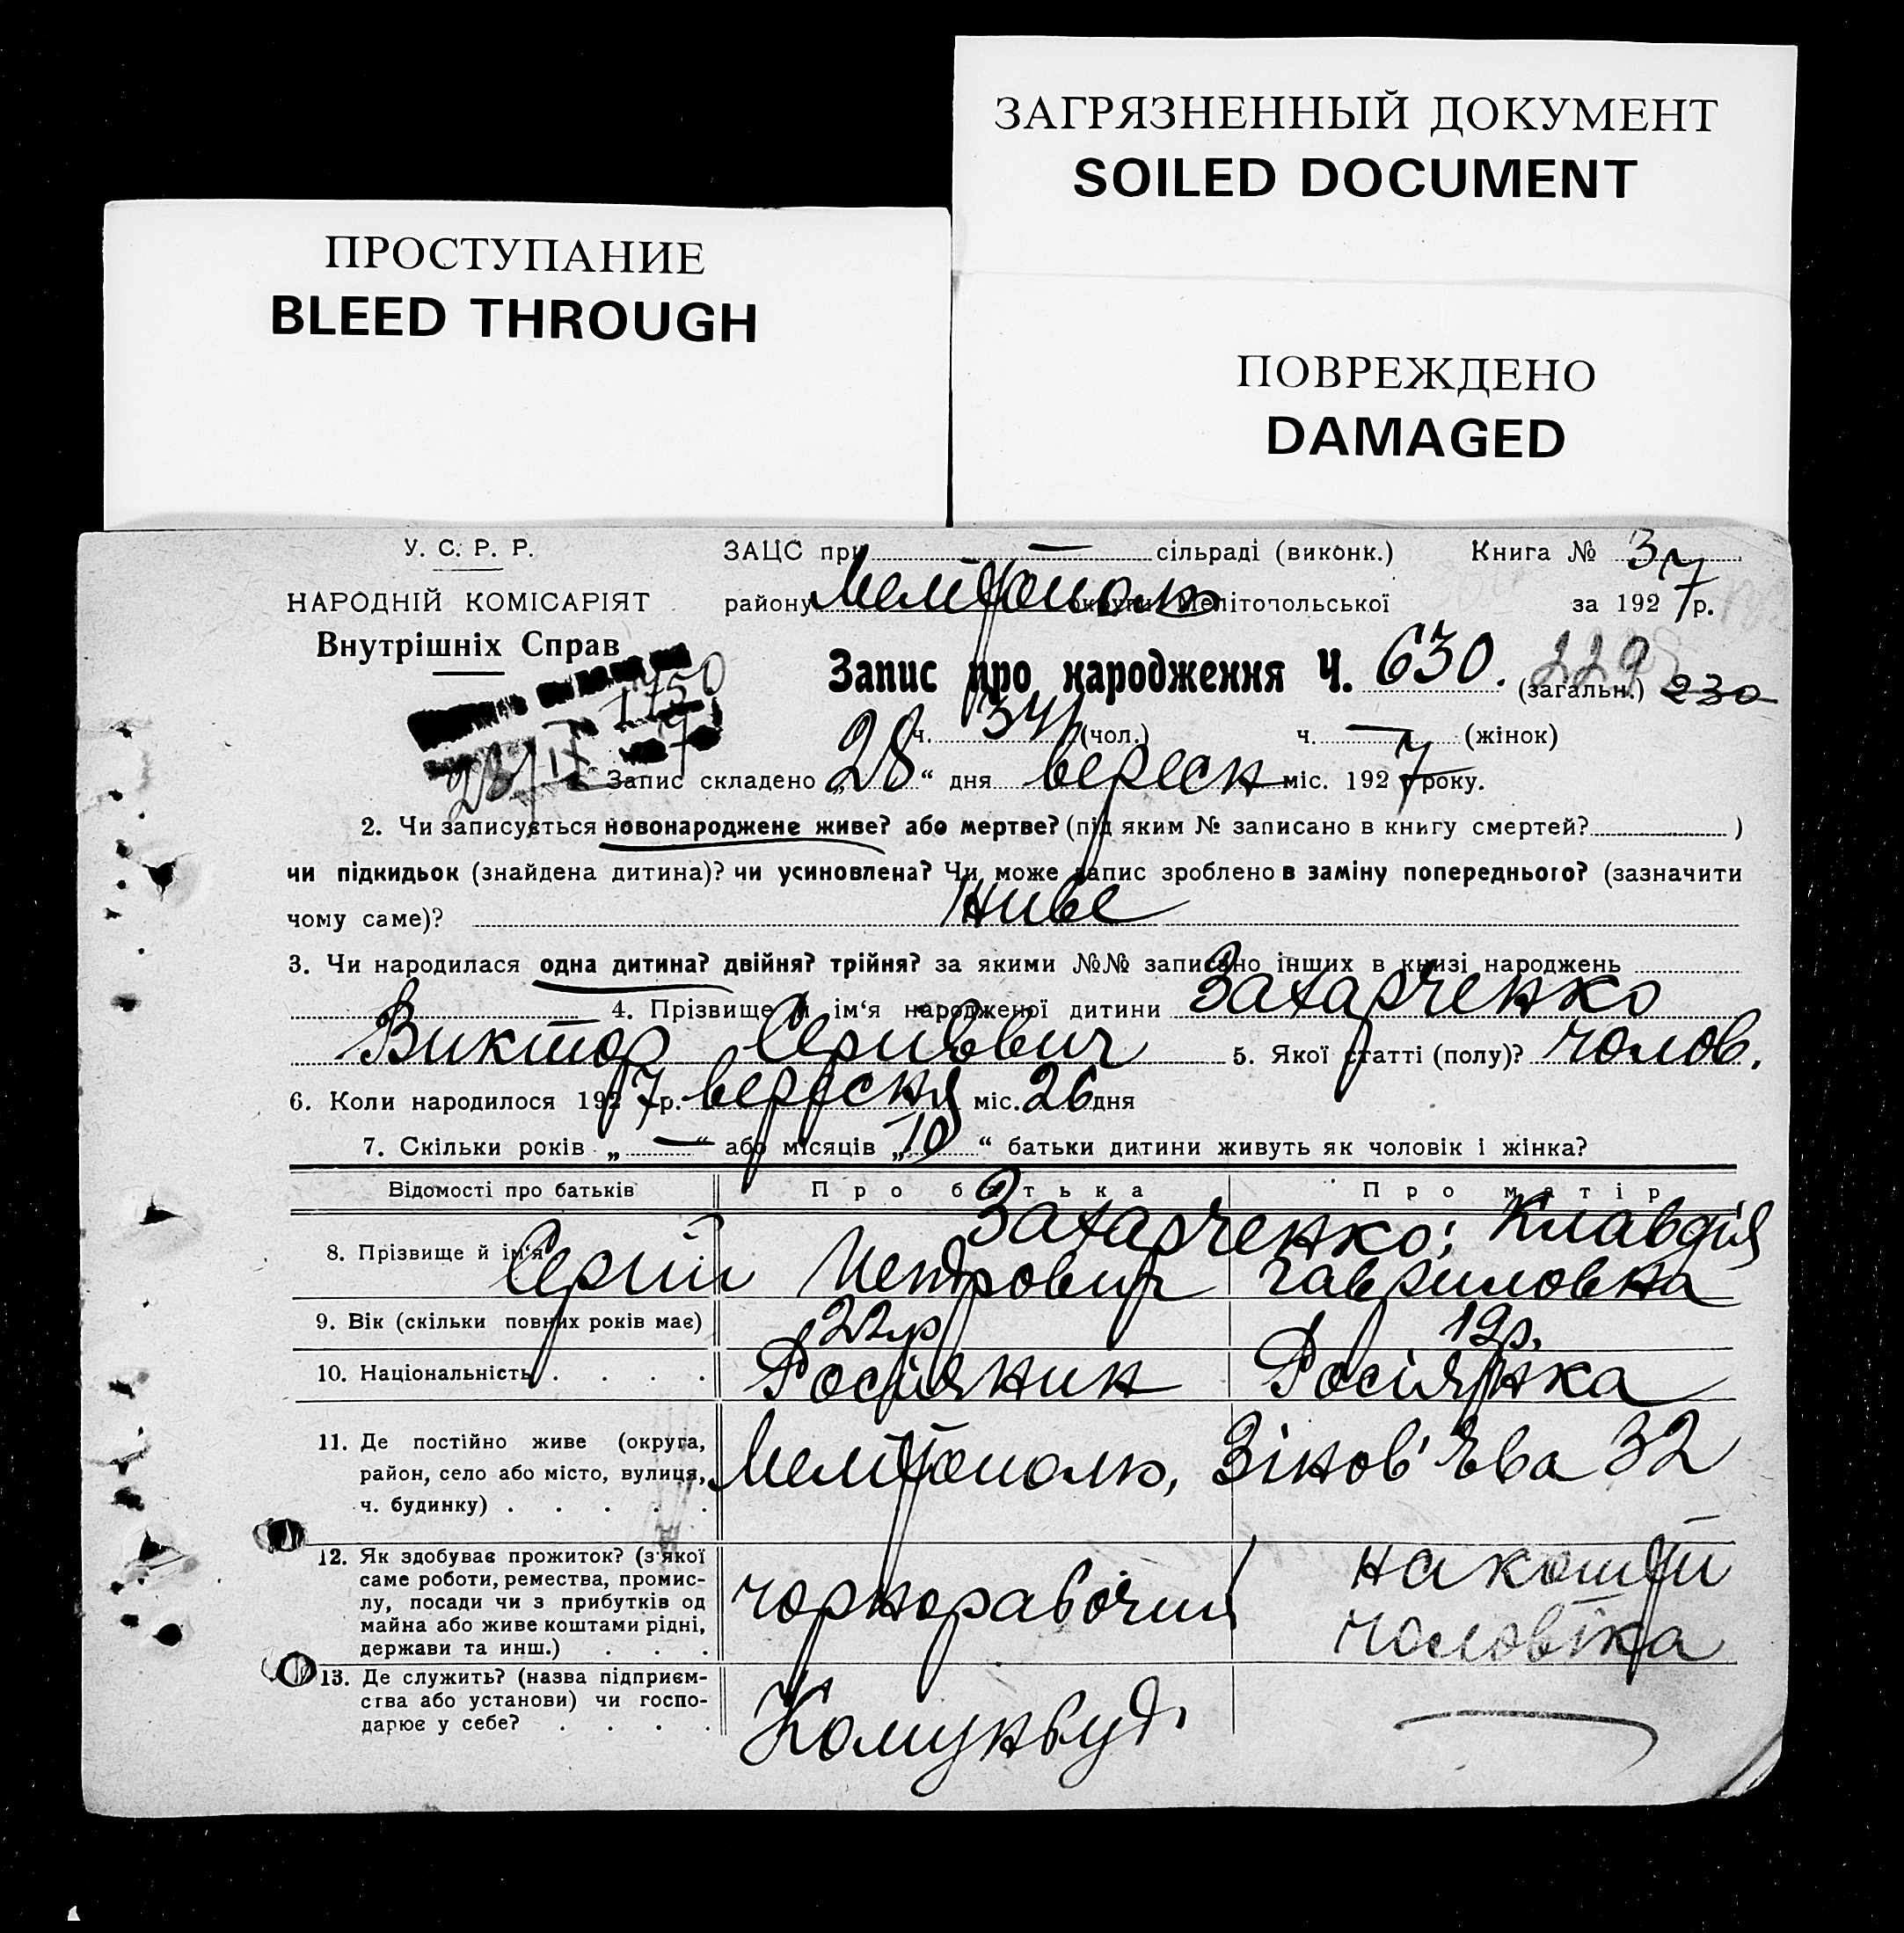 ЗАГРЯЗНЕННЫЙ ДОКУМЕНТ
SOILED DOCUMENT
ПРОСТУПАНИЕ
BLEED THROUGH
ПОВРЕЖДЕНО
DAMAGED
У. С. Р. Р.
НАРОДНІЙ КОМІСАРІЯТ
Внутрішніх Справ
ЗАЦС при — сільраді (виконк.) Книга № 3
району Мелітополь округи Мелітопольської за 1927 р.
Запис про народження Ч. 630. (загальн.) 229 230
ч. 341 (чол.) ч. — (жінок)
1750
Запис складено „28“ дня вересн міс. 1927 року.
2. Чи записується новонароджене живе? або мертве? (під яким № записано в книгу смертей? )
чи підкидьок (знайдена дитина)? чи усиновлена? Чи може запис зроблено в заміну попереднього? (зазначити
чому саме)? живе
3. Чи народилася одна дитина? двійня? трійня? за якими №№ записано інших в книзі народжень
4. Прізвище й ім'я народженої дитини Захарченко
Виктор Сергієвич 5. Якої статті (полу)? чолов.
6. Коли народилося 1927 р. вересня міс. 26 дня
7. Скільки років „—“ або місяців „10“ батьки дитини живуть як чоловік і жінка?
Відомості про батьків Про батька Про матір
8. Прізвище й ім'я Захарченко: Клавдія
Сергій Петрович Гавриловна
9. Вік (скільки повних років має) 22 р 19 р.
10. Національність . . . . Росіянин Росіянка
11. Де постійно живе (округа,
район, село або місто, вулиця,
ч. будинку) . . . . . Мелітополь, Зінов'єва 32
12. Як здобуває прожиток? (з якої
саме роботи, ремества, промис-
лу, посади чи з прибутків од
майна або живе коштами рідні,
держави та инш.) . . . чорнорабочий на кошти
чоловіка
13. Де служить? (назва підприєм-
ства або установи) чи госпо-
дарює у себе? . . . . Комунбуд.